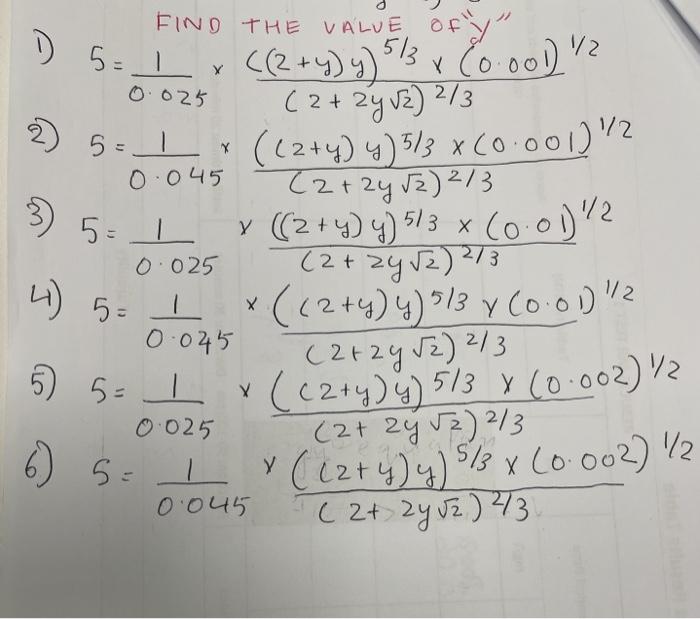 FIND THE VALUE OF "y"
1) 5 = 1/0.025 × ((2+y)y)^5/3 × (0.001)^1/2 / (2+2y√2)^2/3
2) 5 = 1/0.045 × ((2+y)y)^5/3 × (0.001)^1/2 / (2+2y√2)^2/3
3) 5 = 1/0.025 × ((2+y)y)^5/3 × (0.01)^1/2 / (2+2y√2)^2/3
4) 5 = 1/0.045 × ((2+y)y)^5/3 × (0.01)^1/2 / (2+2y√2)^2/3
5) 5 = 1/0.025 × ((2+y)y)^5/3 × (0.002)^1/2 / (2+2y√2)^2/3
6) 5 = 1/0.045 × ((2+y)y)^5/3 × (0.002)^1/2 / (2+2y√2)^2/3